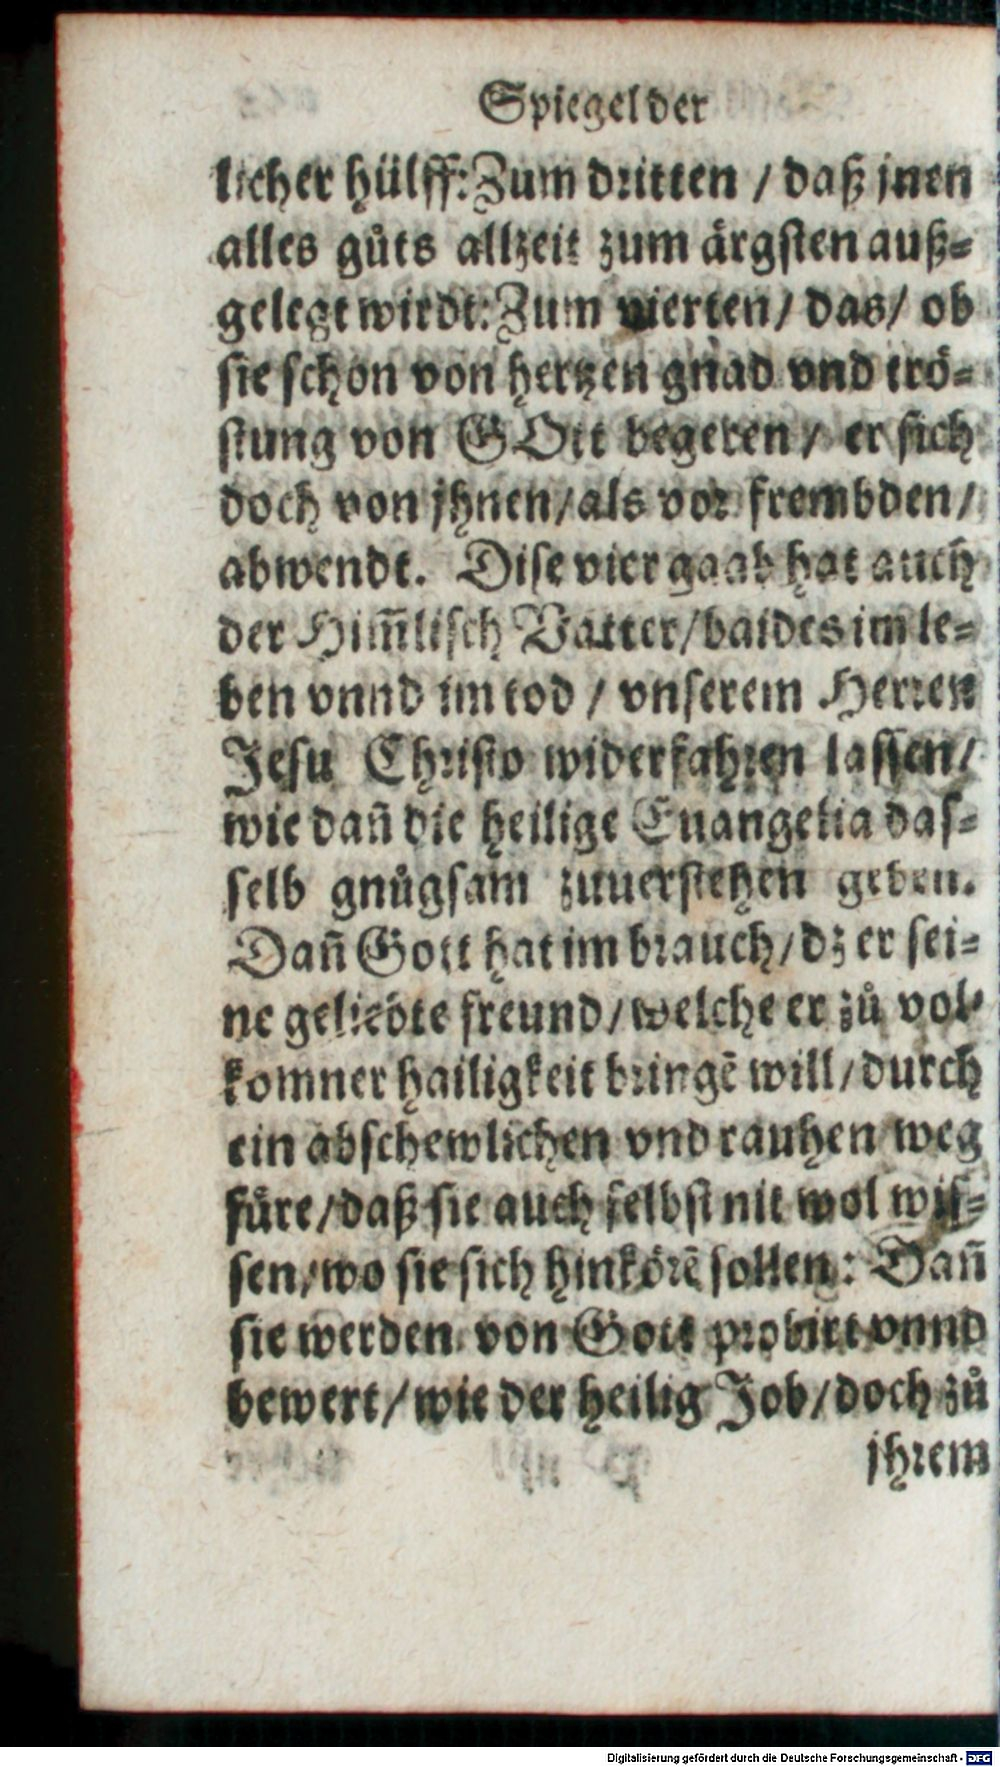 Spiegel der
licher hülff: Zum dritten / daß jnen
alles gůts allzeit zum ärgsten auß=
gelegt wirdt: Zum vierten / das / ob
sie schon von hertzen gnad vnd trö=
stung von GOtt begeren / er sich
doch von jhnen / als vor frembden /
abwendt. Dise vier gaab hat auch
der Him̃lisch Vatter / baides im le=
ben vnnd im tod / vnserem Herren
Jesu Christo widerfahren lassen /
wie dañ die heilige Euangelia das=
selb gnůgsam zuuerstehen geben.
Dañ Gott hat im brauch / dz er sei=
ne geliebte freund / welche er zů vol=
komner hailigkeit bringẽ will / durch
ein abschewlichen vnd rauhen weg
fůre / daß sie auch selbst nit wol wis=
sen / wo sie sich hinkörẽ sollen: Dañ
sie werden von Gott probirt vnnd
bewert / wie der heilig Job / doch zů
jhrem
Digitalisierung gefördert durch die Deutsche Forschungsgemeinschaft - DFG